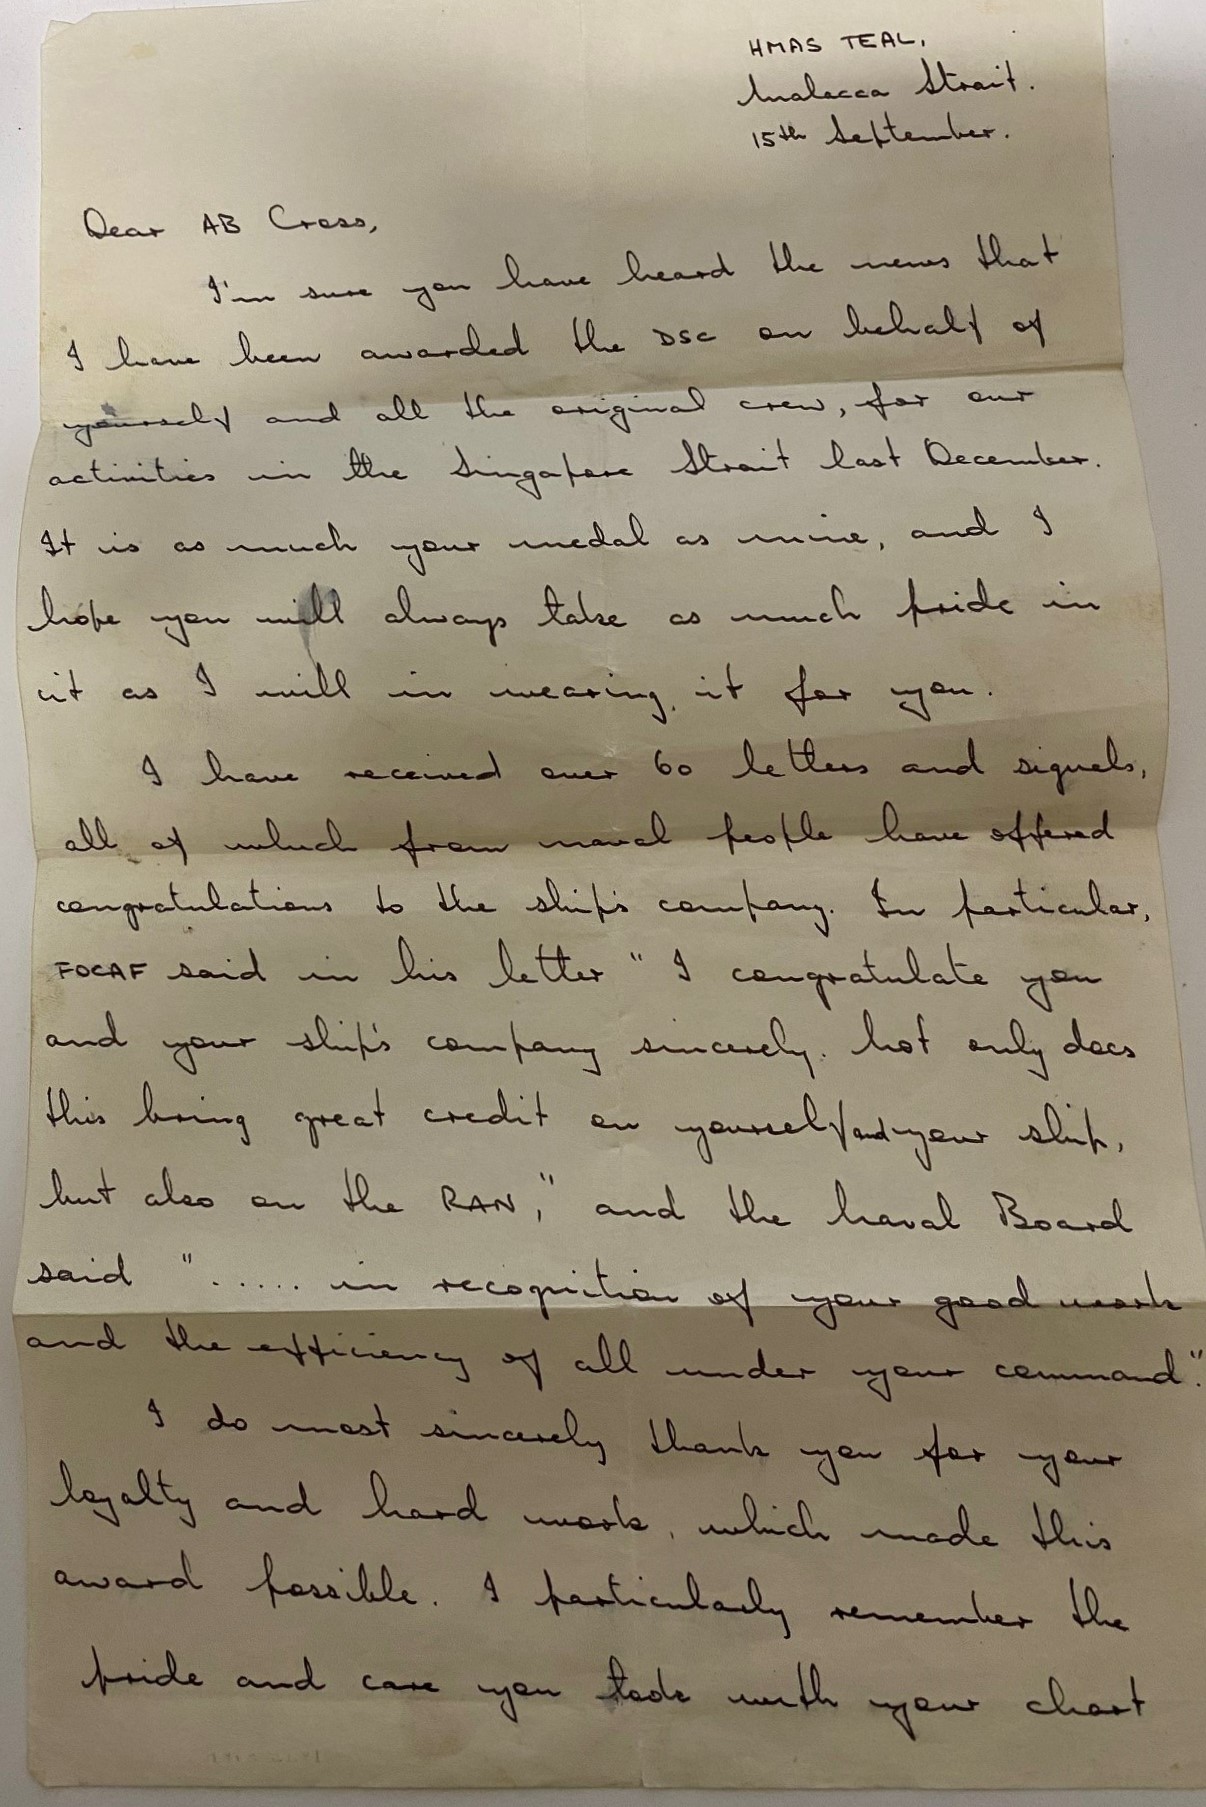 HMAS TEAL,
Malacca Strait.
15th September.
Dear AB Cross,
I'm sure you have heard the news that
I have been awarded the DSC on behalf of
yourself and all the original crew, for our
activities in the Singapore Strait last December.
It is as much your medal as mine, and I
hope you will always take as much pride in
it as I will in wearing it for you.
I have received over 60 letters and signals,
all of which from naval people have offered
congratulations to the ship's company. In particular,
FOCAF said in his letter " I congratulate you
and your ship's company sincerely. Not only does
this bring great credit on yourself and your ship,
but also on the RAN," and the Naval Board
said "...... in recognition of your good work
and the efficiency of all under your command".
I do most sincerely thank you for your
loyalty and hard work, which made this
award possible. I particularly remember the
pride and care you took with your chart